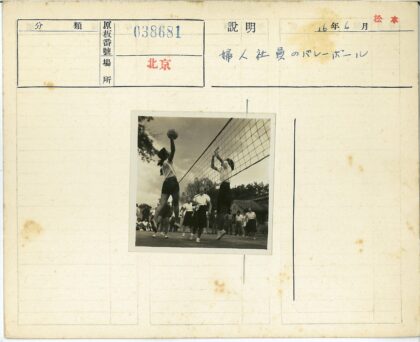 分類
原板番號
038681
場所
北京
説明
16年6月
松本
婦人社員のバレーボール